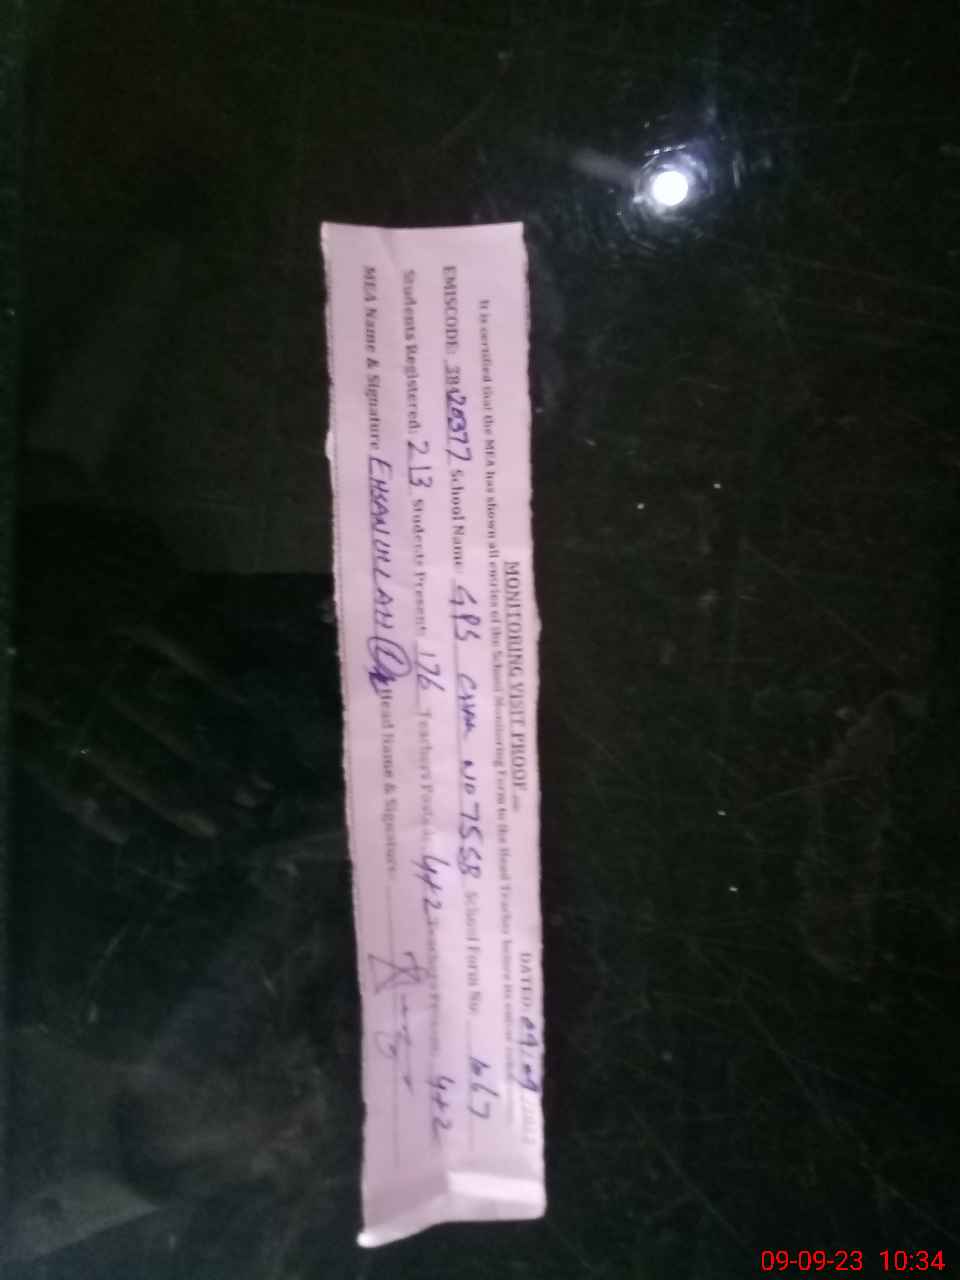 MONITORING VISIT PROOF
DATED: 09/09
It is certified that the MEA has shown all entries of the School Monitoring Form to the Head Teacher before its
EMISCODE: 38420377 School Name: GPS CHAK NO 75 SB School Form No: 1067
Students Registered: 213 Students Present: 176 Teachers Posted: 4+2 Teachers Present: 4+2
MEA Name & Signature EHSANULLAH Head Name & Signature
09-09-23 10:34